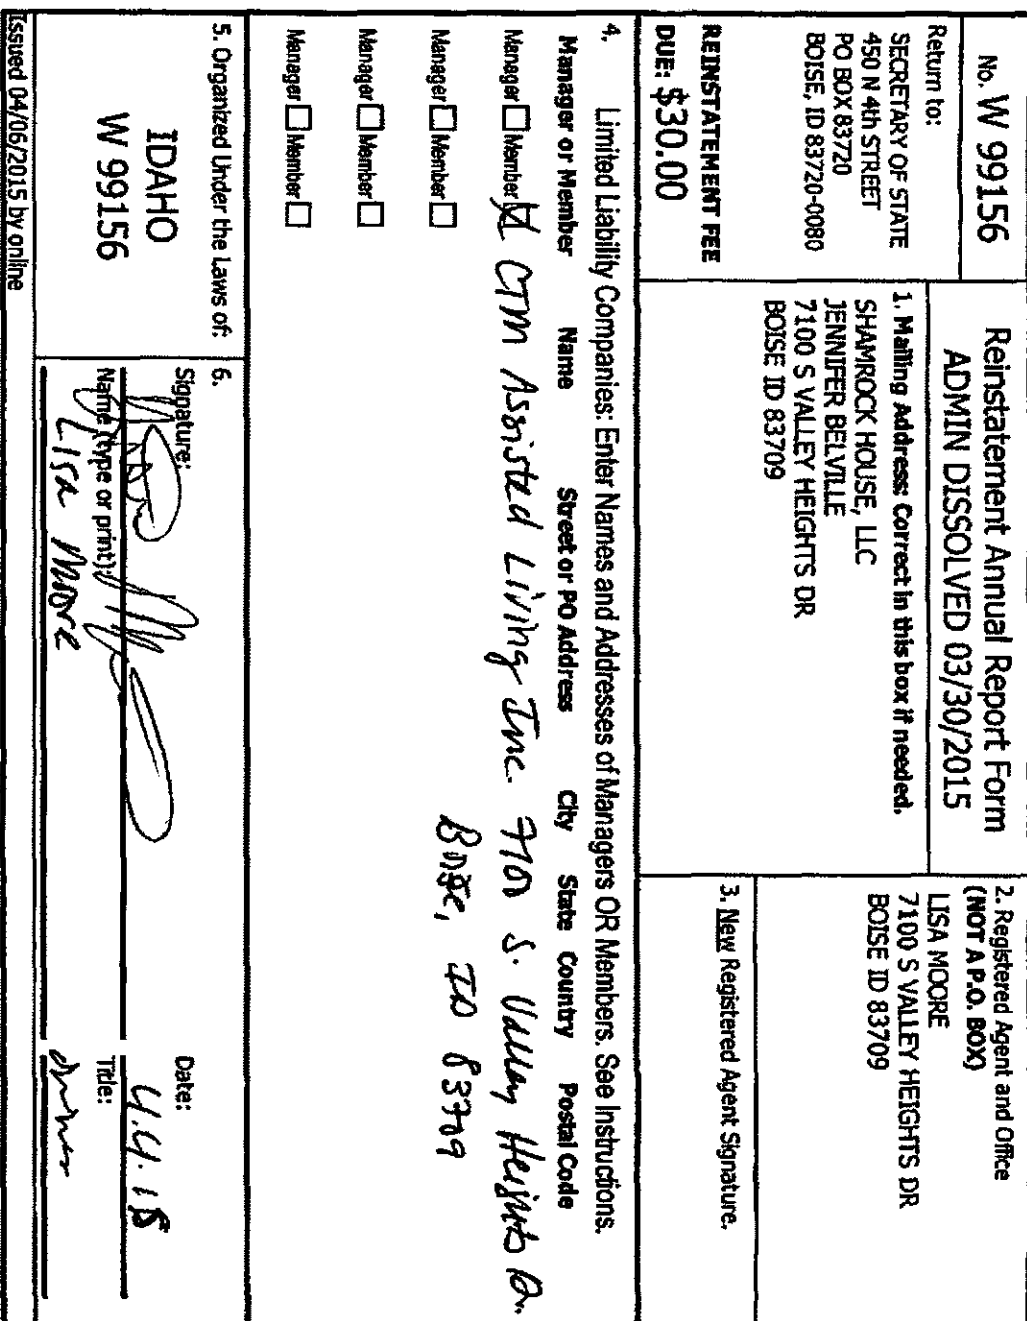 No. W 99156
Return to:
SECRETARY OF STATE
450 N 4th STREET
PO BOX 83720
BOISE, ID 83720-0080
REINSTATEMENT FEE
DUE: $30.00
Reinstatement Annual Report Form
ADMIN DISSOLVED 03/30/2015
1. Mailing Address: Correct in this box if needed.
SHAMROCK HOUSE, LLC
JENNIFER BELVILLE
7100 S VALLEY HEIGHTS DR
BOISE ID 83709
2. Registered Agent and Office
(NOT A P.O. BOX)
LISA MOORE
7100 S VALLEY HEIGHTS DR
BOISE ID 83709
3. New Registered Agent Signature.
4. Limited Liability Companies: Enter Names and Addresses of Managers OR Members. See Instructions.
Manager or Member Name Street or PO Address City State Country Postal Code
Manager Member CTM Assisted Living Inc. 7100 S. Valley Heights Dr.
Boise, ID 83709
Manager Member
Manager Member
Manager Member
5. Organized Under the Laws of:
IDAHO
W 99156
6.
Signature:
Date:
4.4.15
Name (type or print):
Lisa Moore
Title:
owner
Issued 04/06/2015 by online